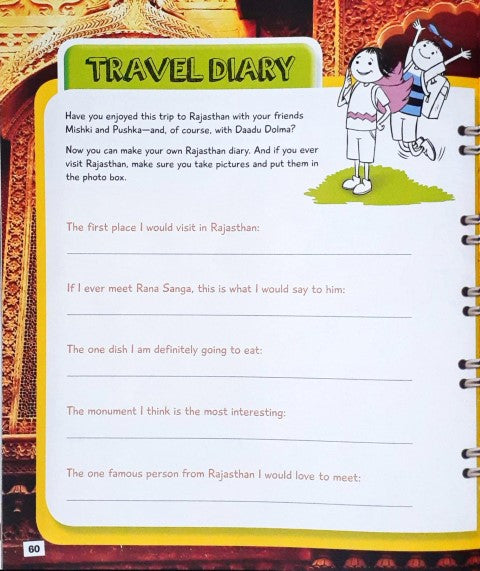 TRAVEL DIARY
Have you enjoyed this trip to Rajasthan with your friends
Mishki and Pushka—and, of course, with Daadu Dolma?
Now you can make your own Rajasthan diary. And if you ever
visit Rajasthan, make sure you take pictures and put them in
the photo box.
The first place I would visit in Rajasthan:
If I ever meet Rana Sanga, this is what I would say to him:
The one dish I am definitely going to eat:
The monument I think is the most interesting:
The one famous person from Rajasthan I would love to meet:
60